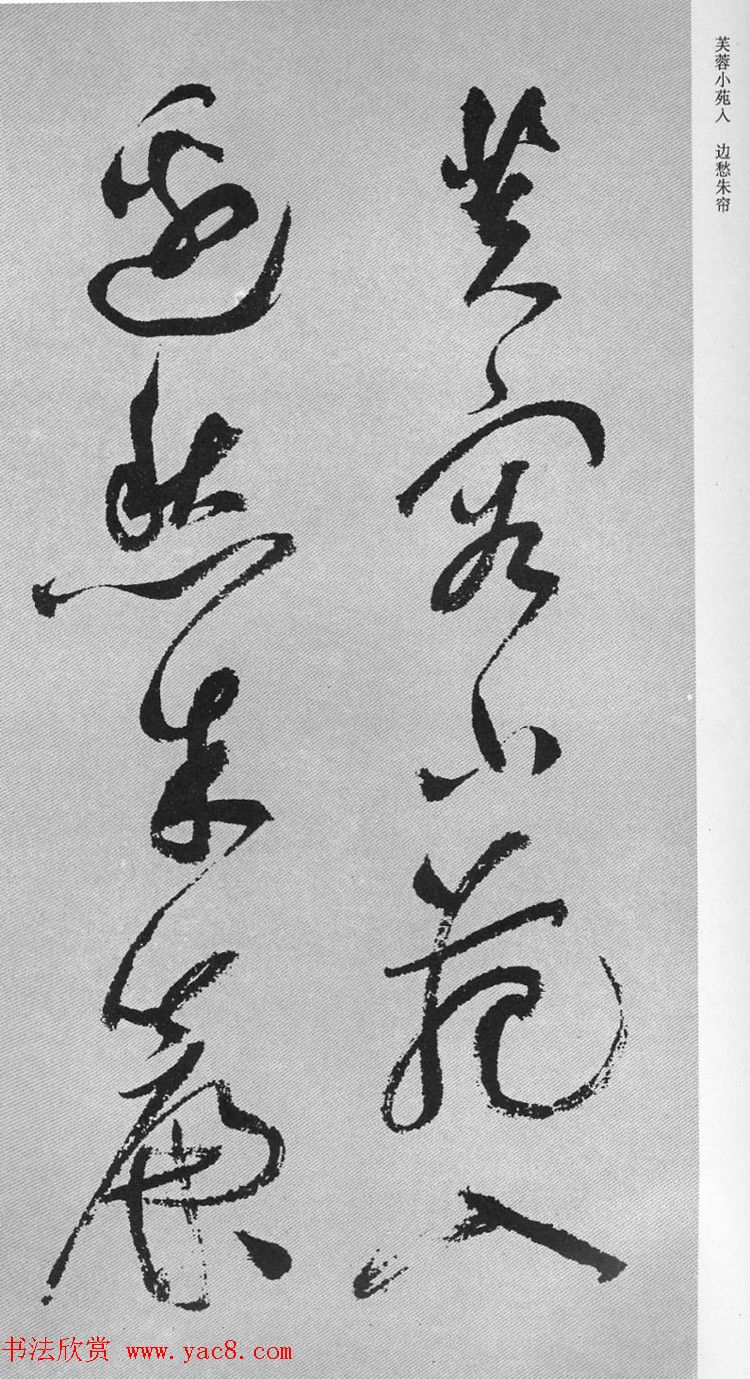 芙蓉小苑入 边愁朱帘
芙蓉小苑入
邊愁朱簾
书法欣赏 www.yac8.com